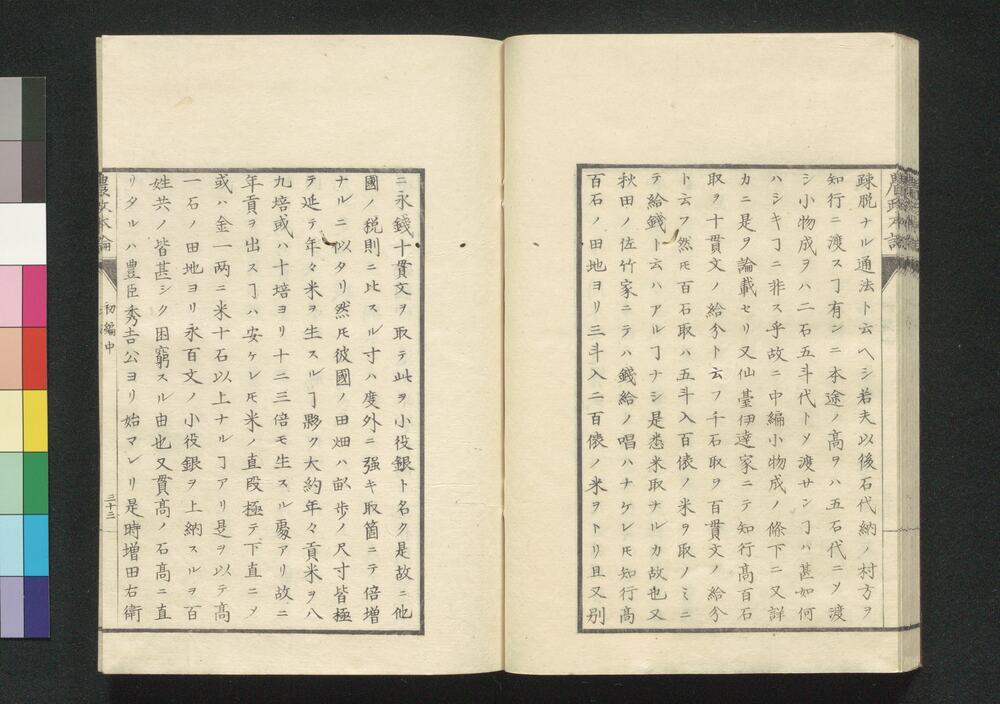 疎脱ナル通法ト云ヘシ若夫以後石代納ノ村方ヲ
知行ニ渡スヿ有ンニ本途ノ高ヲハ五石代ニメ渡
シ小物成ヲハ二石五斗代トメ渡サンヿハ甚如何
ハシキヿニ非ス乎故ニ中編小物成ノ條下ニ又詳
カニ是ヲ論載セリ又仙臺伊達家ニテ知行髙百石
取ヲ十貫文ノ給分ト云フ千石取ヲ百貫文ノ給分
ト云フ然𪜈百石取ハ五斗入百俵ノ米ヲ取ノミニ
テ給錢ト云ハアルヿナシ是悉米取ナルカ故也又
秋田ノ佐竹家ニテハ錢給ノ唱ハナケレ𪜈知行髙
百石ノ田地ヨリ三斗入二百俵ノ米ヲトリ且又別
ニ永錢十貫文ヲ取テ此ヲ小役銀ト名ク是故ニ他
國ノ税則ニ比スル寸ハ度外ニ强キ取箇ニテ倍増
ナルニ似タリ然𪜈彼國ノ田畑ハ畝歩ノ尺寸皆極
テ延テ年々米ヲ生スルヿ夥ク大約年々貢米ヲ八
九培或ハ十培ヨリ十二三倍モ生スル處アリ故ニ
年貢ヲ出スヿハ安ケレ𪜈米ノ直段極テ下直ニメ
或ハ金一两ニ米十石以上ナルヿアリ是ヲ以テ髙
一石ノ田地ヨリ永百文ノ小役銀ヲ上納スルヲ百
姓共ノ皆甚シク困窮スル由也又貫髙ノ石髙ニ直
リタルハ豊臣秀吉公ヨリ始マレリ是時増田右衛
農政本論
初編中
三十三